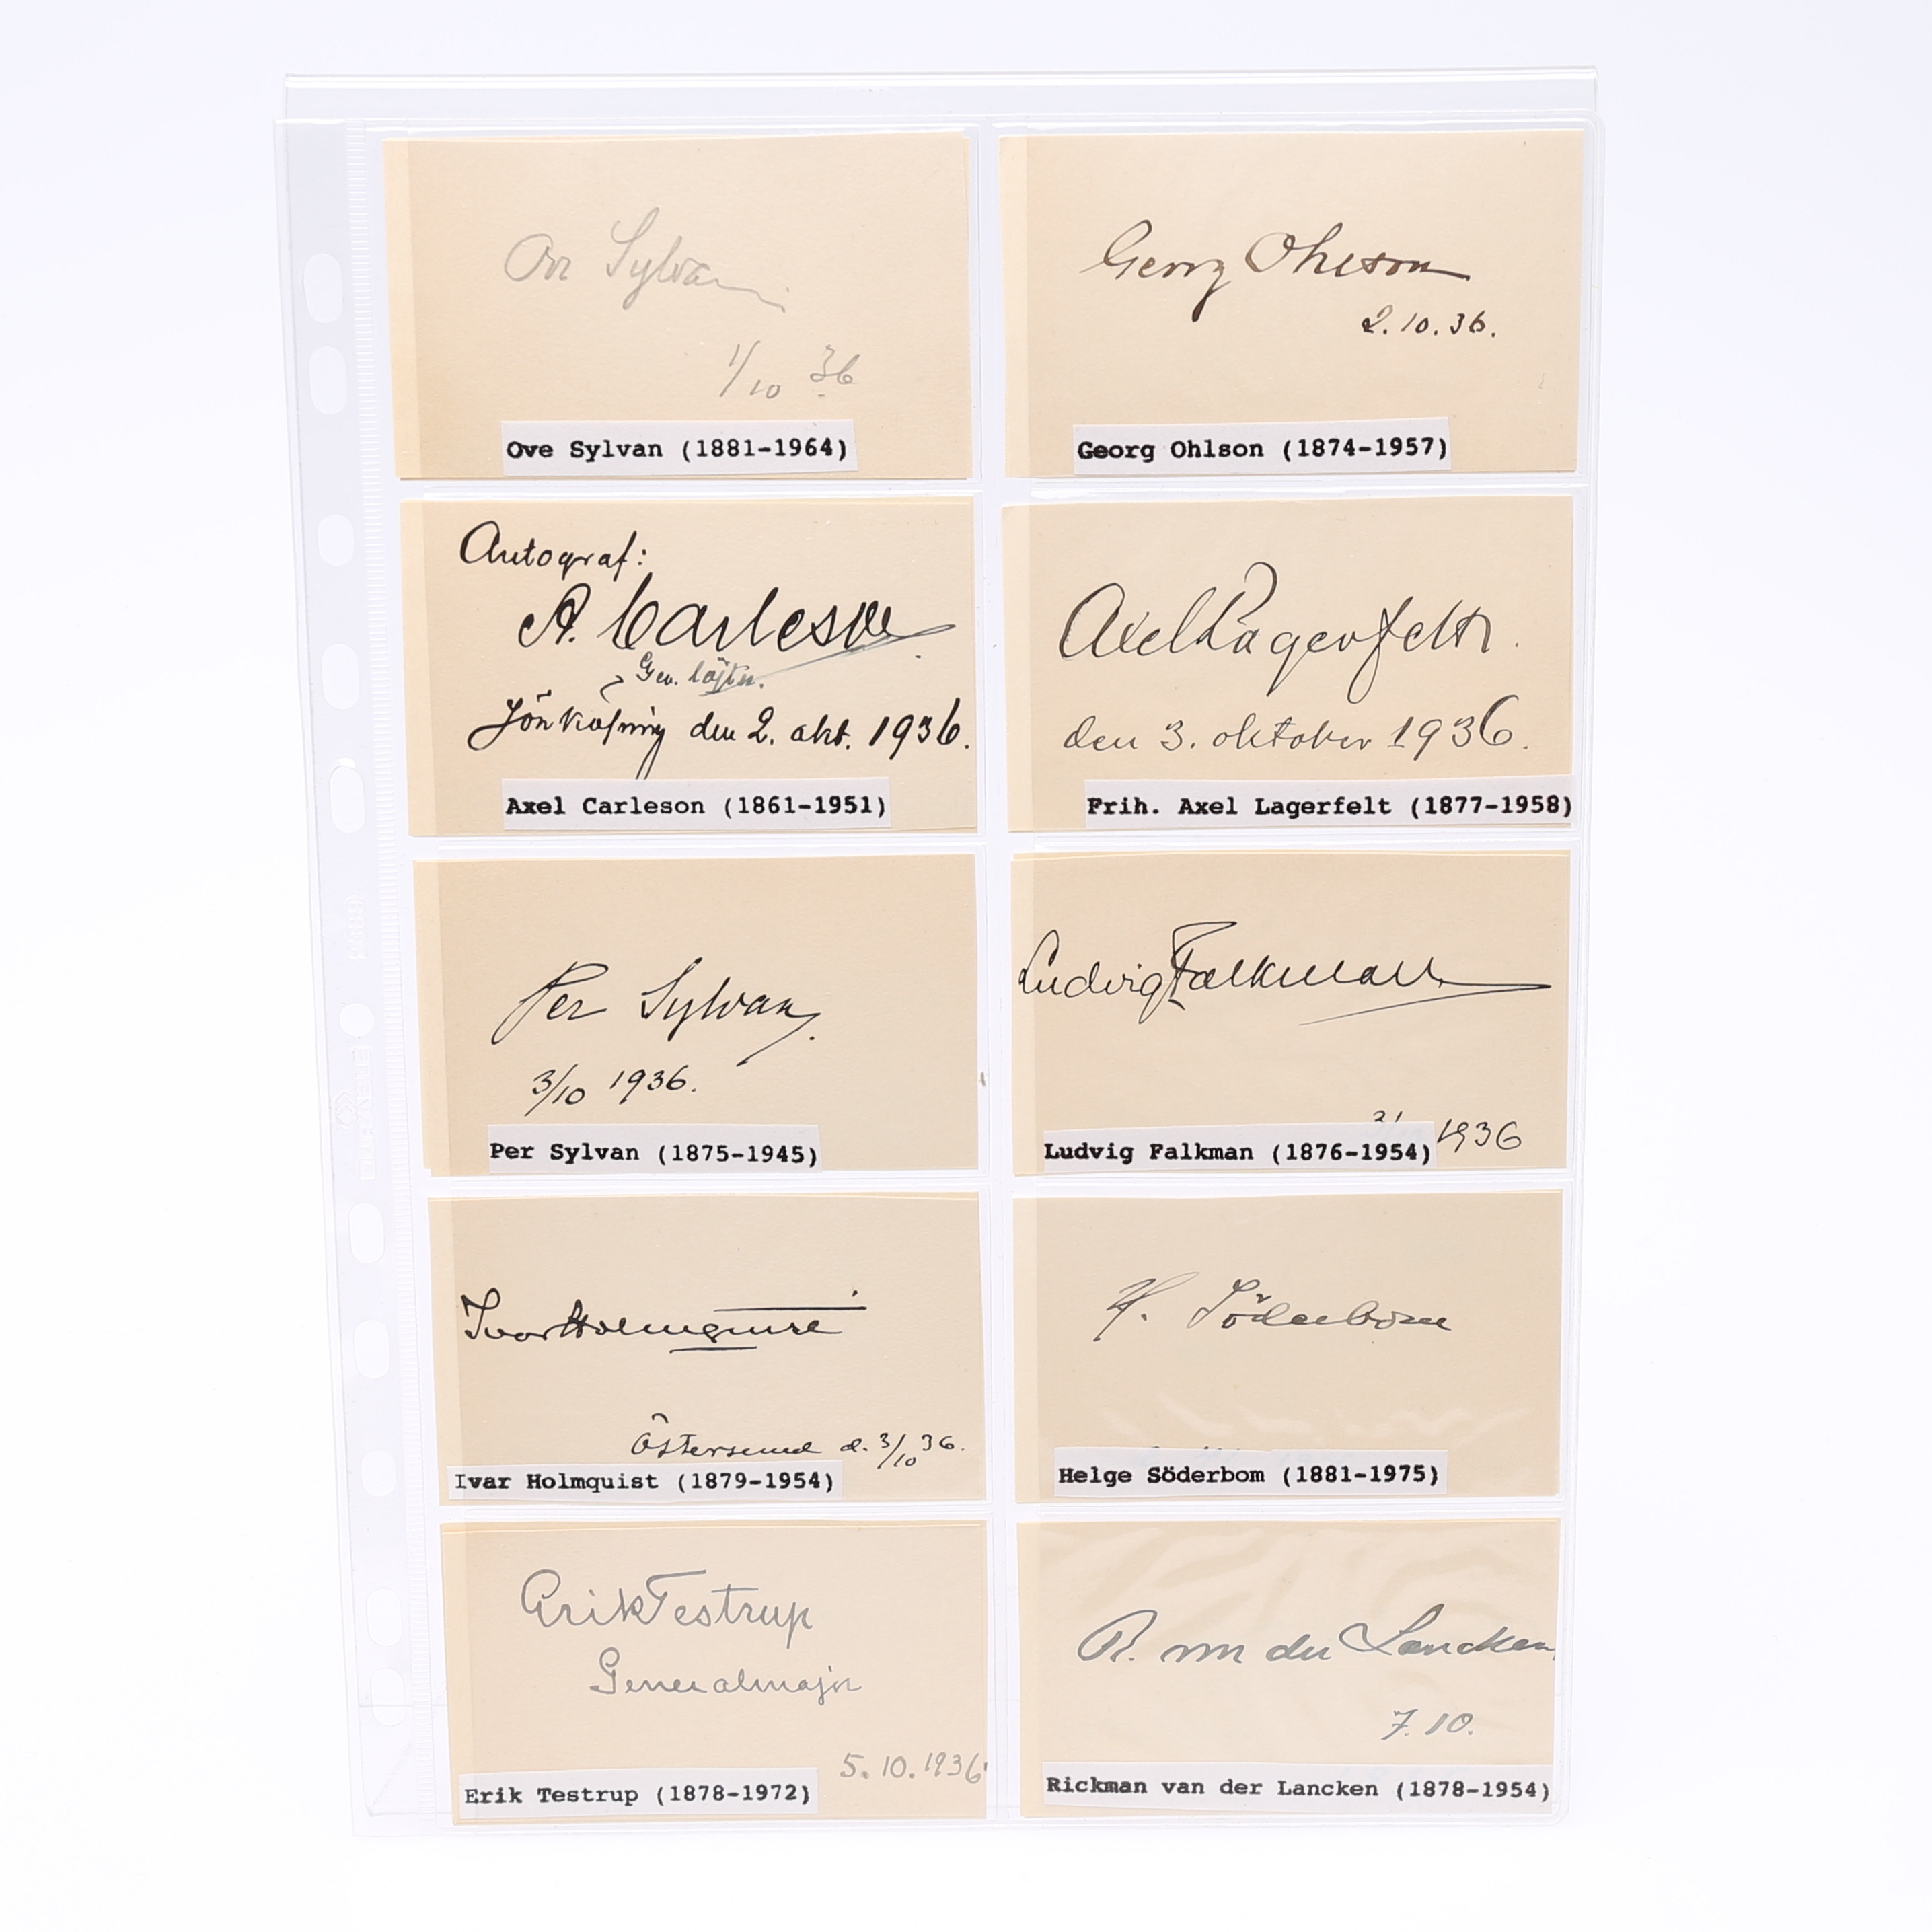 Ove Sylvan
1/10 36
Ove Sylvan (1881-1964)
Georg Ohlson
2.10.36.
Georg Ohlson (1874-1957)
Autograf:
A. Carleson
Gen. löjtn.
Jönköping den 2. okt. 1936.
Axel Carleson (1861-1951)
Axel Lagerfelt.
den 3. oktober 1936.
Frih. Axel Lagerfelt (1877-1958)
Per Sylvan.
3/10 1936.
Per Sylvan (1875-1945)
Ludvig Falkman
1936
Ludvig Falkman (1876-1954)
Ivar Holmquist
Östersund d. 3/10 36.
Ivar Holmquist (1879-1954)
H. Söderbom
Helge Söderbom (1881-1975)
Erik Testrup
Generalmajor
5.10.1936
Erik Testrup (1878-1972)
R. von der Lancken
7.10.
Rickman van der Lancken (1878-1954)